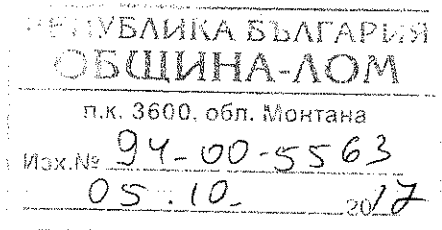 РЕПУБЛИКА БЪЛГАРИЯ
ОБЩИНА-ЛОМ
п.к. 3600, обл. Монтана
Изх.№ 94-00-5563
05.10. 2017